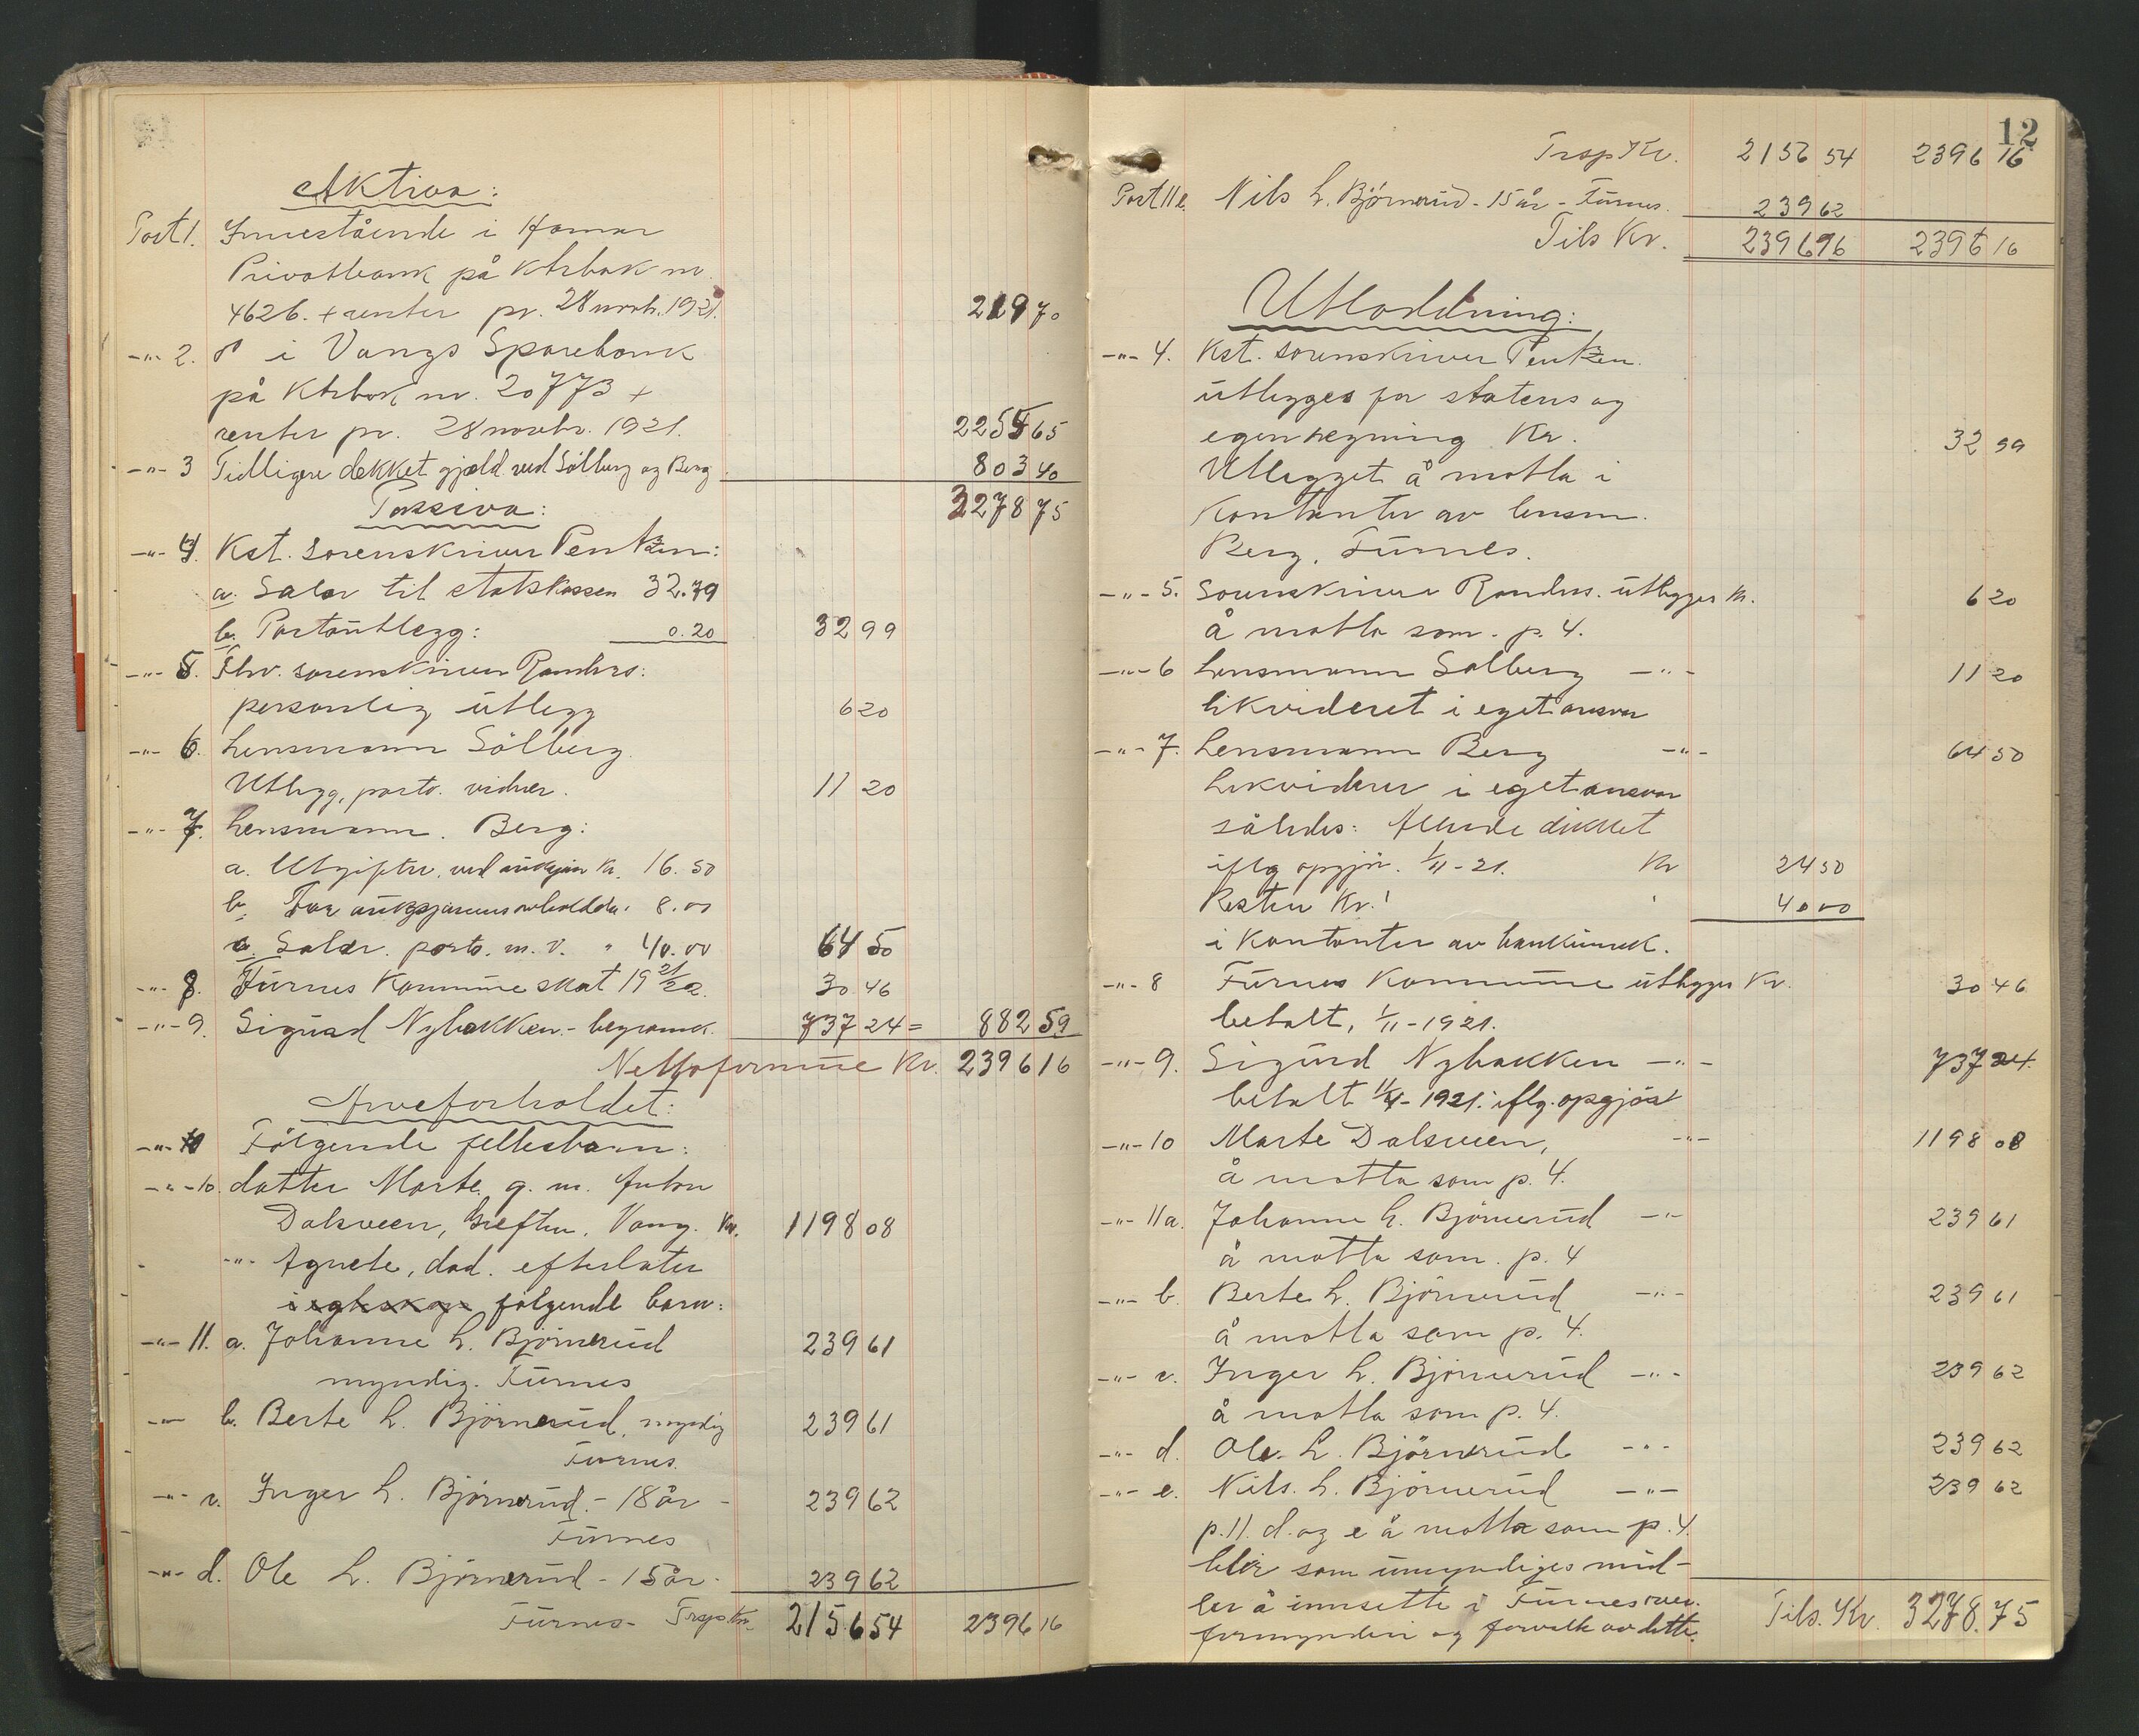 Aktiva:
Post 1. Innestående i Hamar
Privatbank på ktrbok nr.
4626. + renter pr. 28 novbr. 1921. 219 70
-"- 2. do i Vangs Sparebank
på ktrbok nr. 20773 +
renter pr. 28 novbr. 1921. 2255 65
-"- 3 Tidligere dekket gjæld ved Sölberg og Berg 803 40
Passiva: 3278 75
-"- 4. Kst. sorenskriver Pentzen:
a. Salær til statskassen 32.79
b. Portoutlegg: 0.20 32 99
-"- 5. Fhv. sorenskriver Randers:
personlig utlegg 6 20
-"- 6. Lensmann Sölberg.
Utlegg, porto. vidner. 11 20
-"- 7. Lensmann. Berg:
a. Utgifter ved auksjon kr. 16.50
b. For auksjonens avholdelse 8.00
c. Salær. porto. m. v. " 40.00 64 50
-"- 8. Furnes Kommune skat 19 21/22. 30 46
-"- 9. Sigurd Nybakken - begravn. 737 24 = 882 59
Nettoformue Kr. 2396 16
Arveforholdet:
-"- 10 Fölgende fellesbarn:
-"- 10. datter Marte g. m. Anton
Dalsveen, Vang. Kr. 1198 08
-"- Agnete, död. efterlater
fölgende barn:
-"- 11. a. Johanne L. Björnerud 239 61
myndig. Furnes
-"- b. Berte L. Björnerud, myndig 239 61
Furnes.
-"- c. Inger L. Björnerud. - 18 år - 239 62
Furnes
-"- d. Ole L. Björnerud - 15 år - 239 62
Furnes - Trsp Kr. 2156 54 2396 16
12
Trsp Kr. 2156 54 2396 16
Post 11 e. Nils L. Björnerud - 15 år - Furnes. 239 62
Tils Kr. 2396 16 2396 16
Utlodning:
-"- 4. Kst. sorenskriver Pentzen.
utlegges for statens og
egen regning Kr. 32 99
Utlegget å motta i
kontanter av lensm.
Berg, Furnes.
-"- 5. Sorenskriver Randers. utlegges kr. 6 20
å motta som. p. 4.
-"- 6 Lensmann Solberg -"- 11 20
likvideret i eget ansvar
-"- 7. Lensmann Berg -"- 64 50
Likviderer i eget ansvar
således: Allerede dekket
iflg opgjör. 1/11 - 21. Kr 24 50
Resten Kr. 40 00
i kontanter av bankinnsk.
-"- 8 Furnes Kommune utlegges Kr. 30 46
betalt, 1/11 - 1921.
-"- 9. Sigurd Nybakken -"- 737 24.
betalt - 1921. iflg. opgjör
-"- 10 Marte Dalsveen, -"- 1198 08
å motta som p. 4.
-"- 11 a. Johanne L. Björnerud -"- 239 61
å motta som. p. 4
-"- b. Berte L. Björnerud -"- 239 61
å motta som p. 4.
-"- c. Inger L. Björnerud -"- 239 62
å motta som p. 4.
-"- d. Ole L. Björnerud -"- 239 62
-"- e. Nils. L. Björnerud -"- 239 62
p. 11. d. og e å motta som p. 4.
blir som umyndiges mid-
ler å innsette i Furnes over-
formynderi og forvalte av dette. Tils. Kr. 3278.75